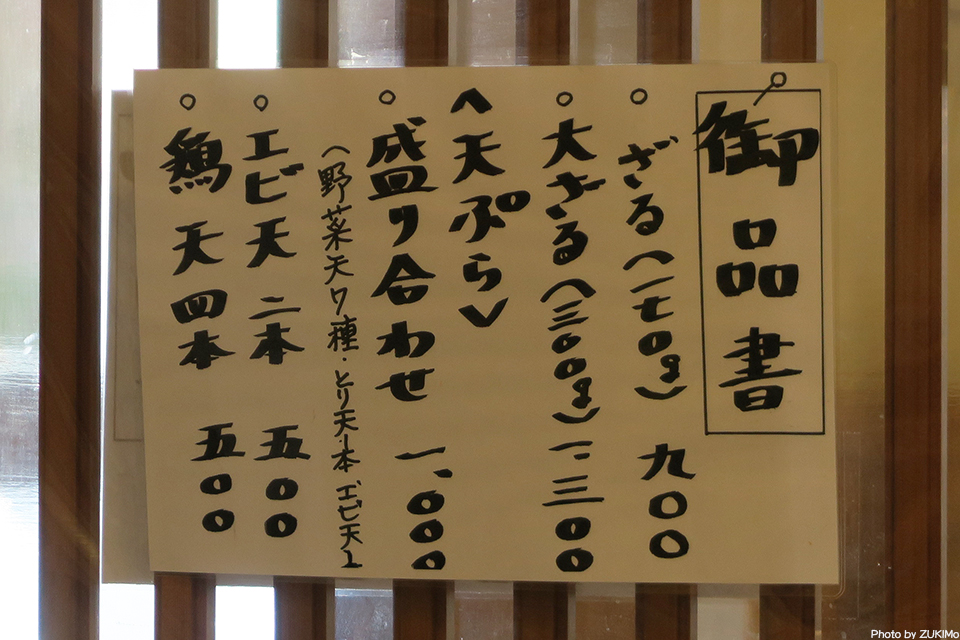 御品書
○ざる(一七〇g) 九〇〇
○大ざる(三〇〇g) 一、三〇〇
<天ぷら>
○盛り合わせ 一、〇〇〇
(野菜天ワ種・とり天1本 エビ天1
○エビ天 二本 五〇〇
○鶏天 四本 五〇〇
Photo by ZUKIMo